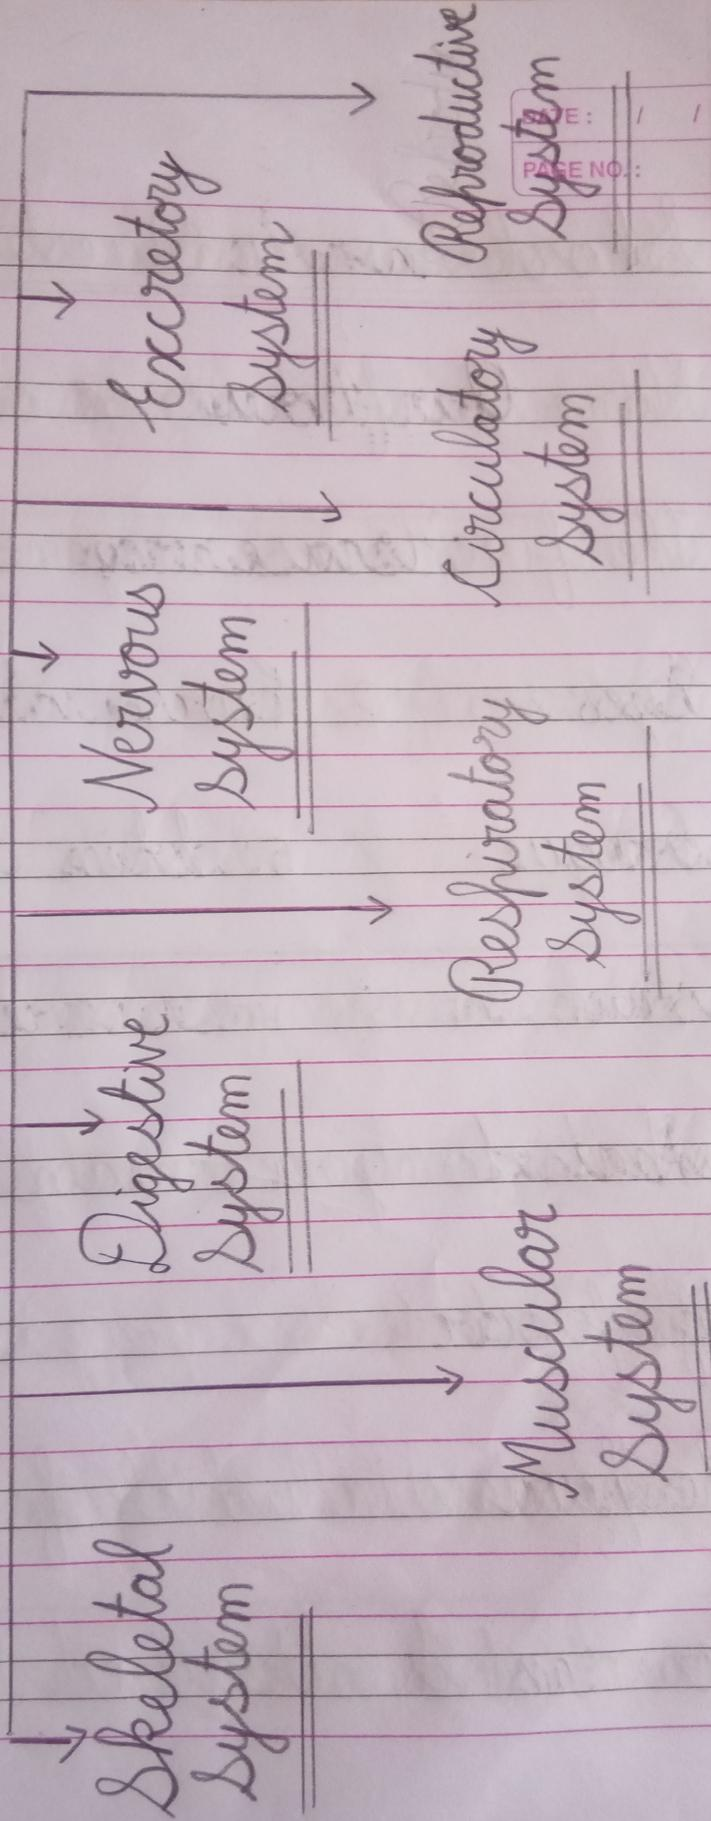 Skeletal
System
Muscular
System
Digestive
System
Respiratory
System
Nervous
System
Circulatory
System
Excretory
System
Reproductive
System
DATE : / /
PAGE NO. :